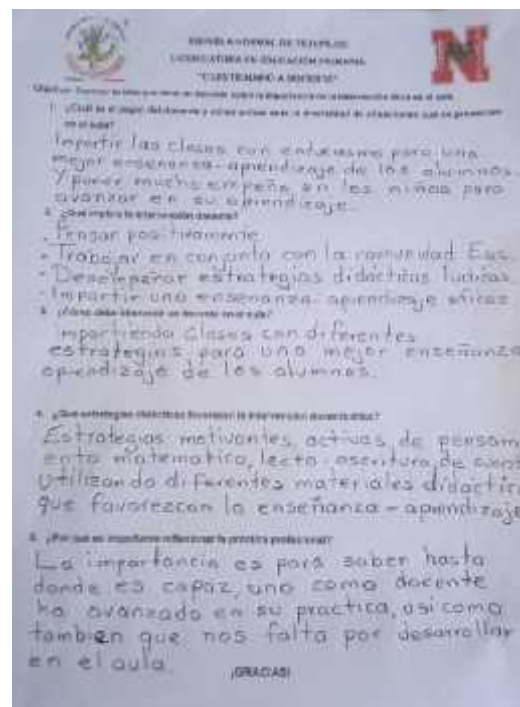 ESCUELA NORMAL DE TEJUPILCO
LICENCIATURA EN EDUCACIÓN PRIMARIA
"CUESTIONARIO A DOCENTE"
1. ¿Cuál es el papel del docente y cómo actúa ante la diversidad de situaciones que se presentan
en el aula?
Impartir las clases con entusiasmo para una
mejor enseñanza-aprendizaje de los alumnos.
Y poner mucho empeño en los niños para
avanzar en su aprendizaje.
2. ¿Qué implica la intervención docente?
- Pensar positivamente
- Trabajar en conjunto con la comunidad Esc.
- Desempeñar estrategias didácticas lúdicas
- Impartir una enseñanza-aprendizaje eficaz
3. ¿Cómo debe intervenir un docente en el aula?
impartiendo clases con diferentes
estrategias para una mejor enseñanza
aprendizaje de los alumnos.
4. ¿Qué estrategias didácticas favorecen la intervención docente ética?
Estrategias motivantes, activas, de pensam
ento matematico, lecto-escritura, de
utilizando diferentes materiales didactic
que favorezcan la enseñanza-aprendizaje
5. ¿Por qué es importante reflexionar la práctica profesional?
La importancia es para saber hasta
donde es capaz, uno como docente
ha avanzado en su practica, asi como
tambien que nos falta por desarrollar
en el aula.
¡GRACIAS!